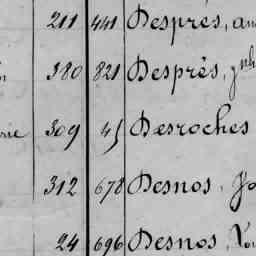 211 441 Després, an
380 821 Després, Jph
rie 309 45 Desroches
312 678 Desnos, Jo
24 696 Desnos, Lou